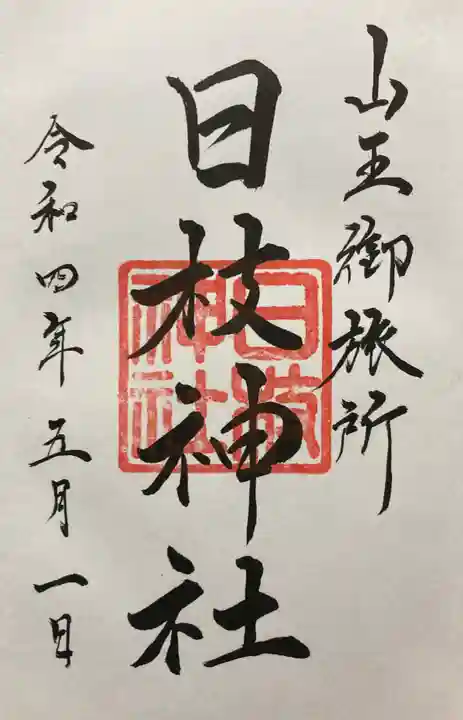 山王御旅所
日枝神社
日枝神社
令和四年五月一日